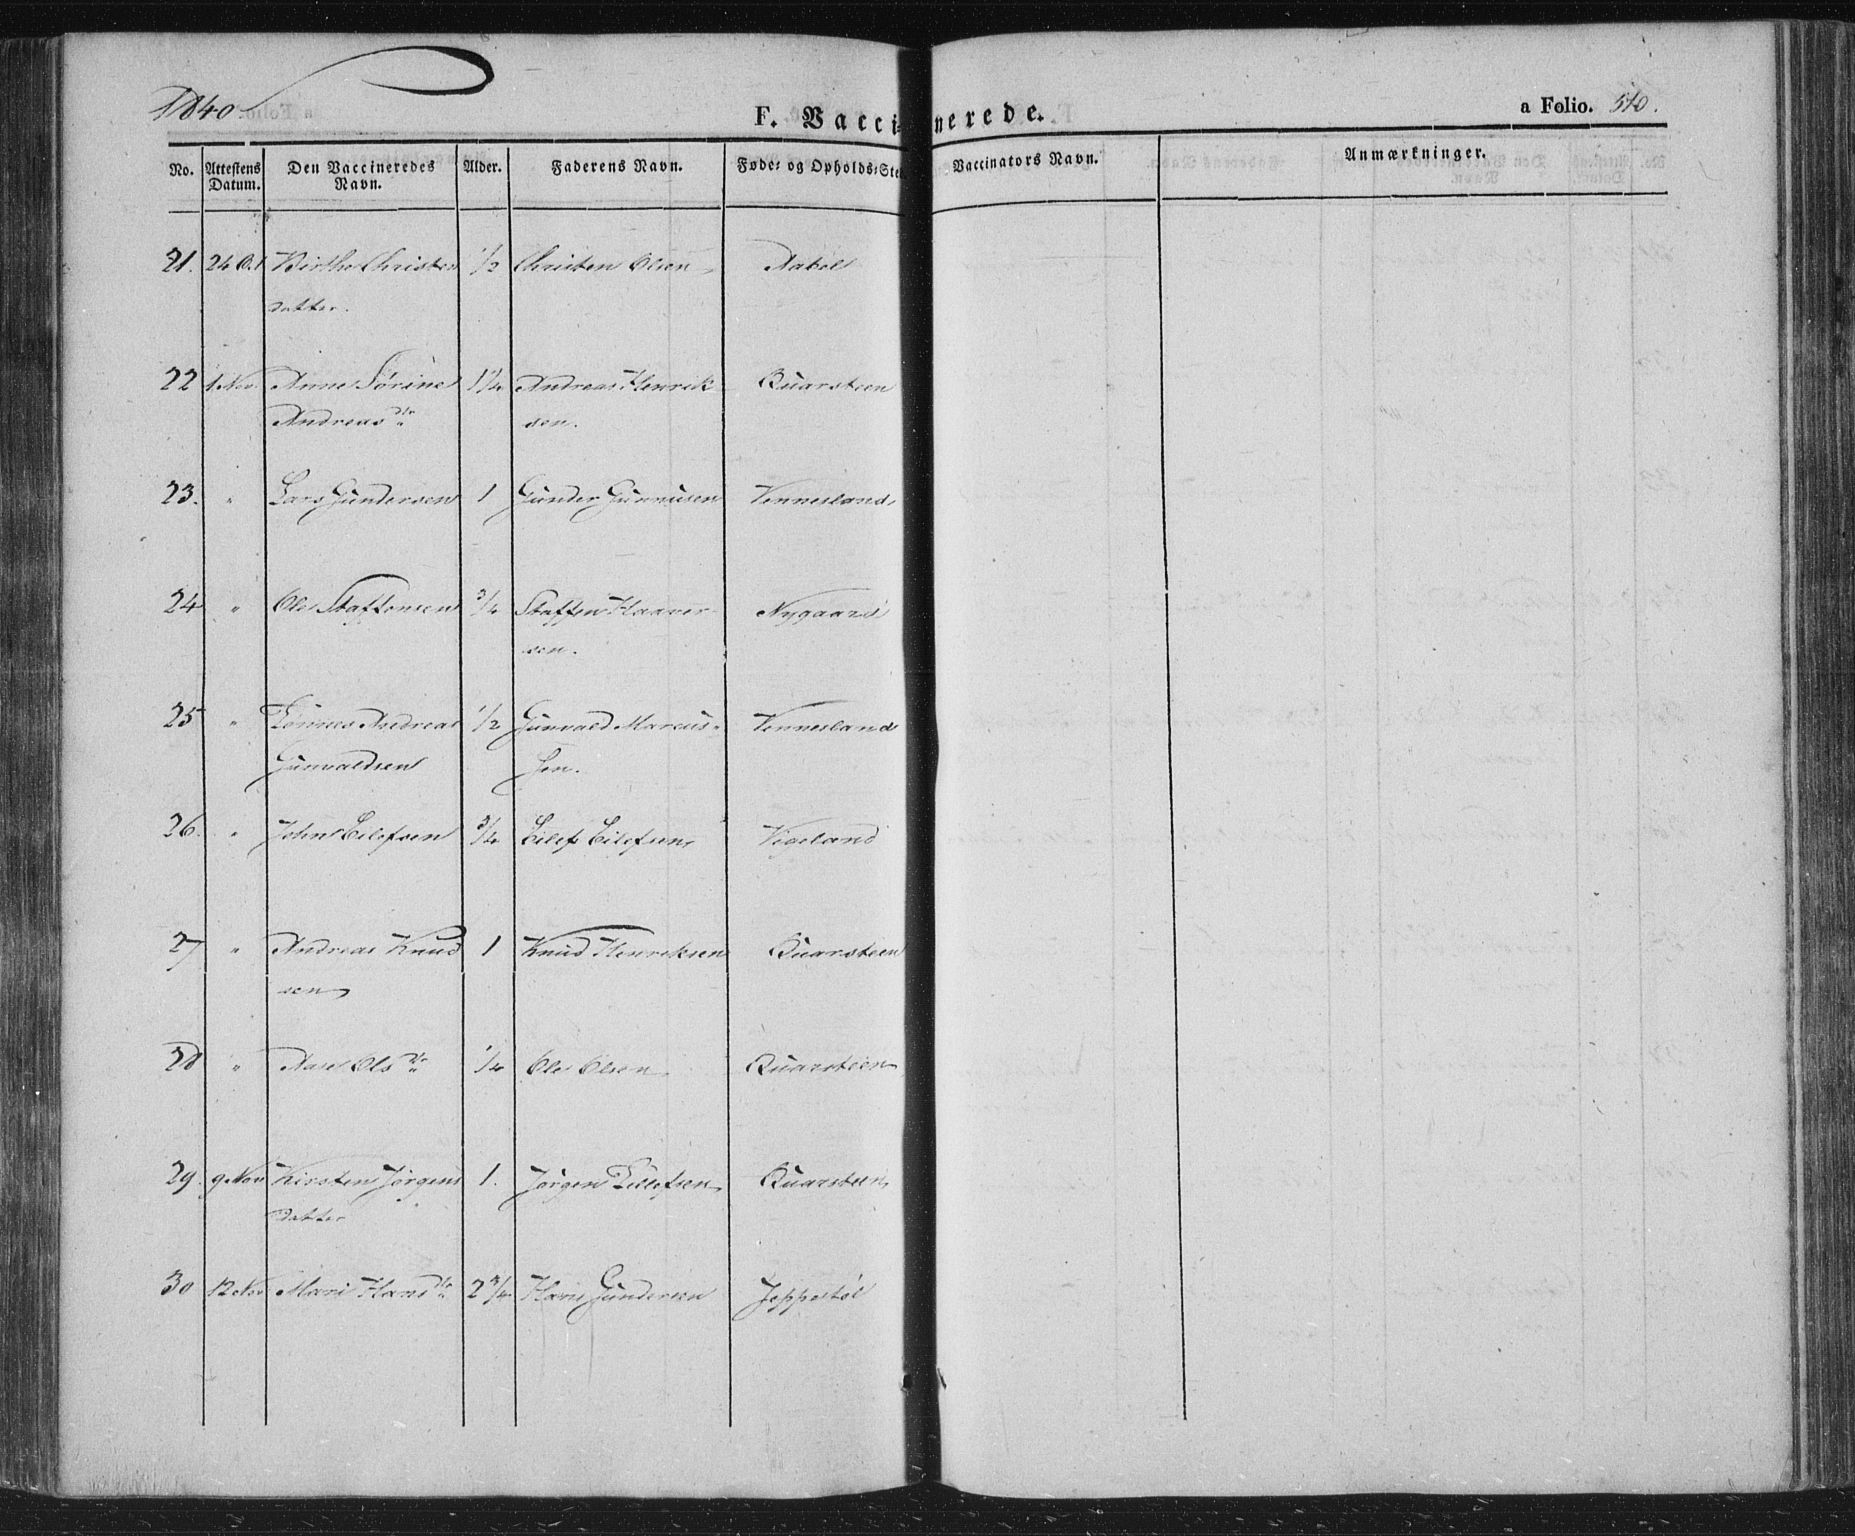 1840
F. Vaccinerede.
a Folio. 510.
No. Attestens Datum. Den Vaccineredes Navn. Alder. Faderens Navn. Føde- og Opholds-Sted Vaccinators Navn. Anmærkninger.
21. 24 Oct Birthe Christen 1/2 Christen Olsen Aabel
datter.
22 1 Nov Anne Sørine 1 1/4 Andreas Henrik Quarsteen
Andreasdtr sen.
23. " Lars Gundersen 1 Gunder Gunnusen Vennesland
24 " Ole Staffensen 3/4 Staffen Haaver Nygaard
sen.
25 " Tønnes Andreas 1/2 Gunvald Marcus- Vennesland
Gunvaldsen sen.
26. " John Eilefsen 3/4 Eilef Eilefsen Vigeland
27 " Andreas Knud 1 Knud Henriksen Quarsteen
sen
28 " Aase Olsdtr 1/4 Ole Olsen Quarsteen
29. 9 Nov Kirsten Jørgens 1. Jørgen Eilefsen Quarsteen
datter
30 12 Nov Mari Hansdtr 2 3/4 Hans Gundersen Jeppestøl